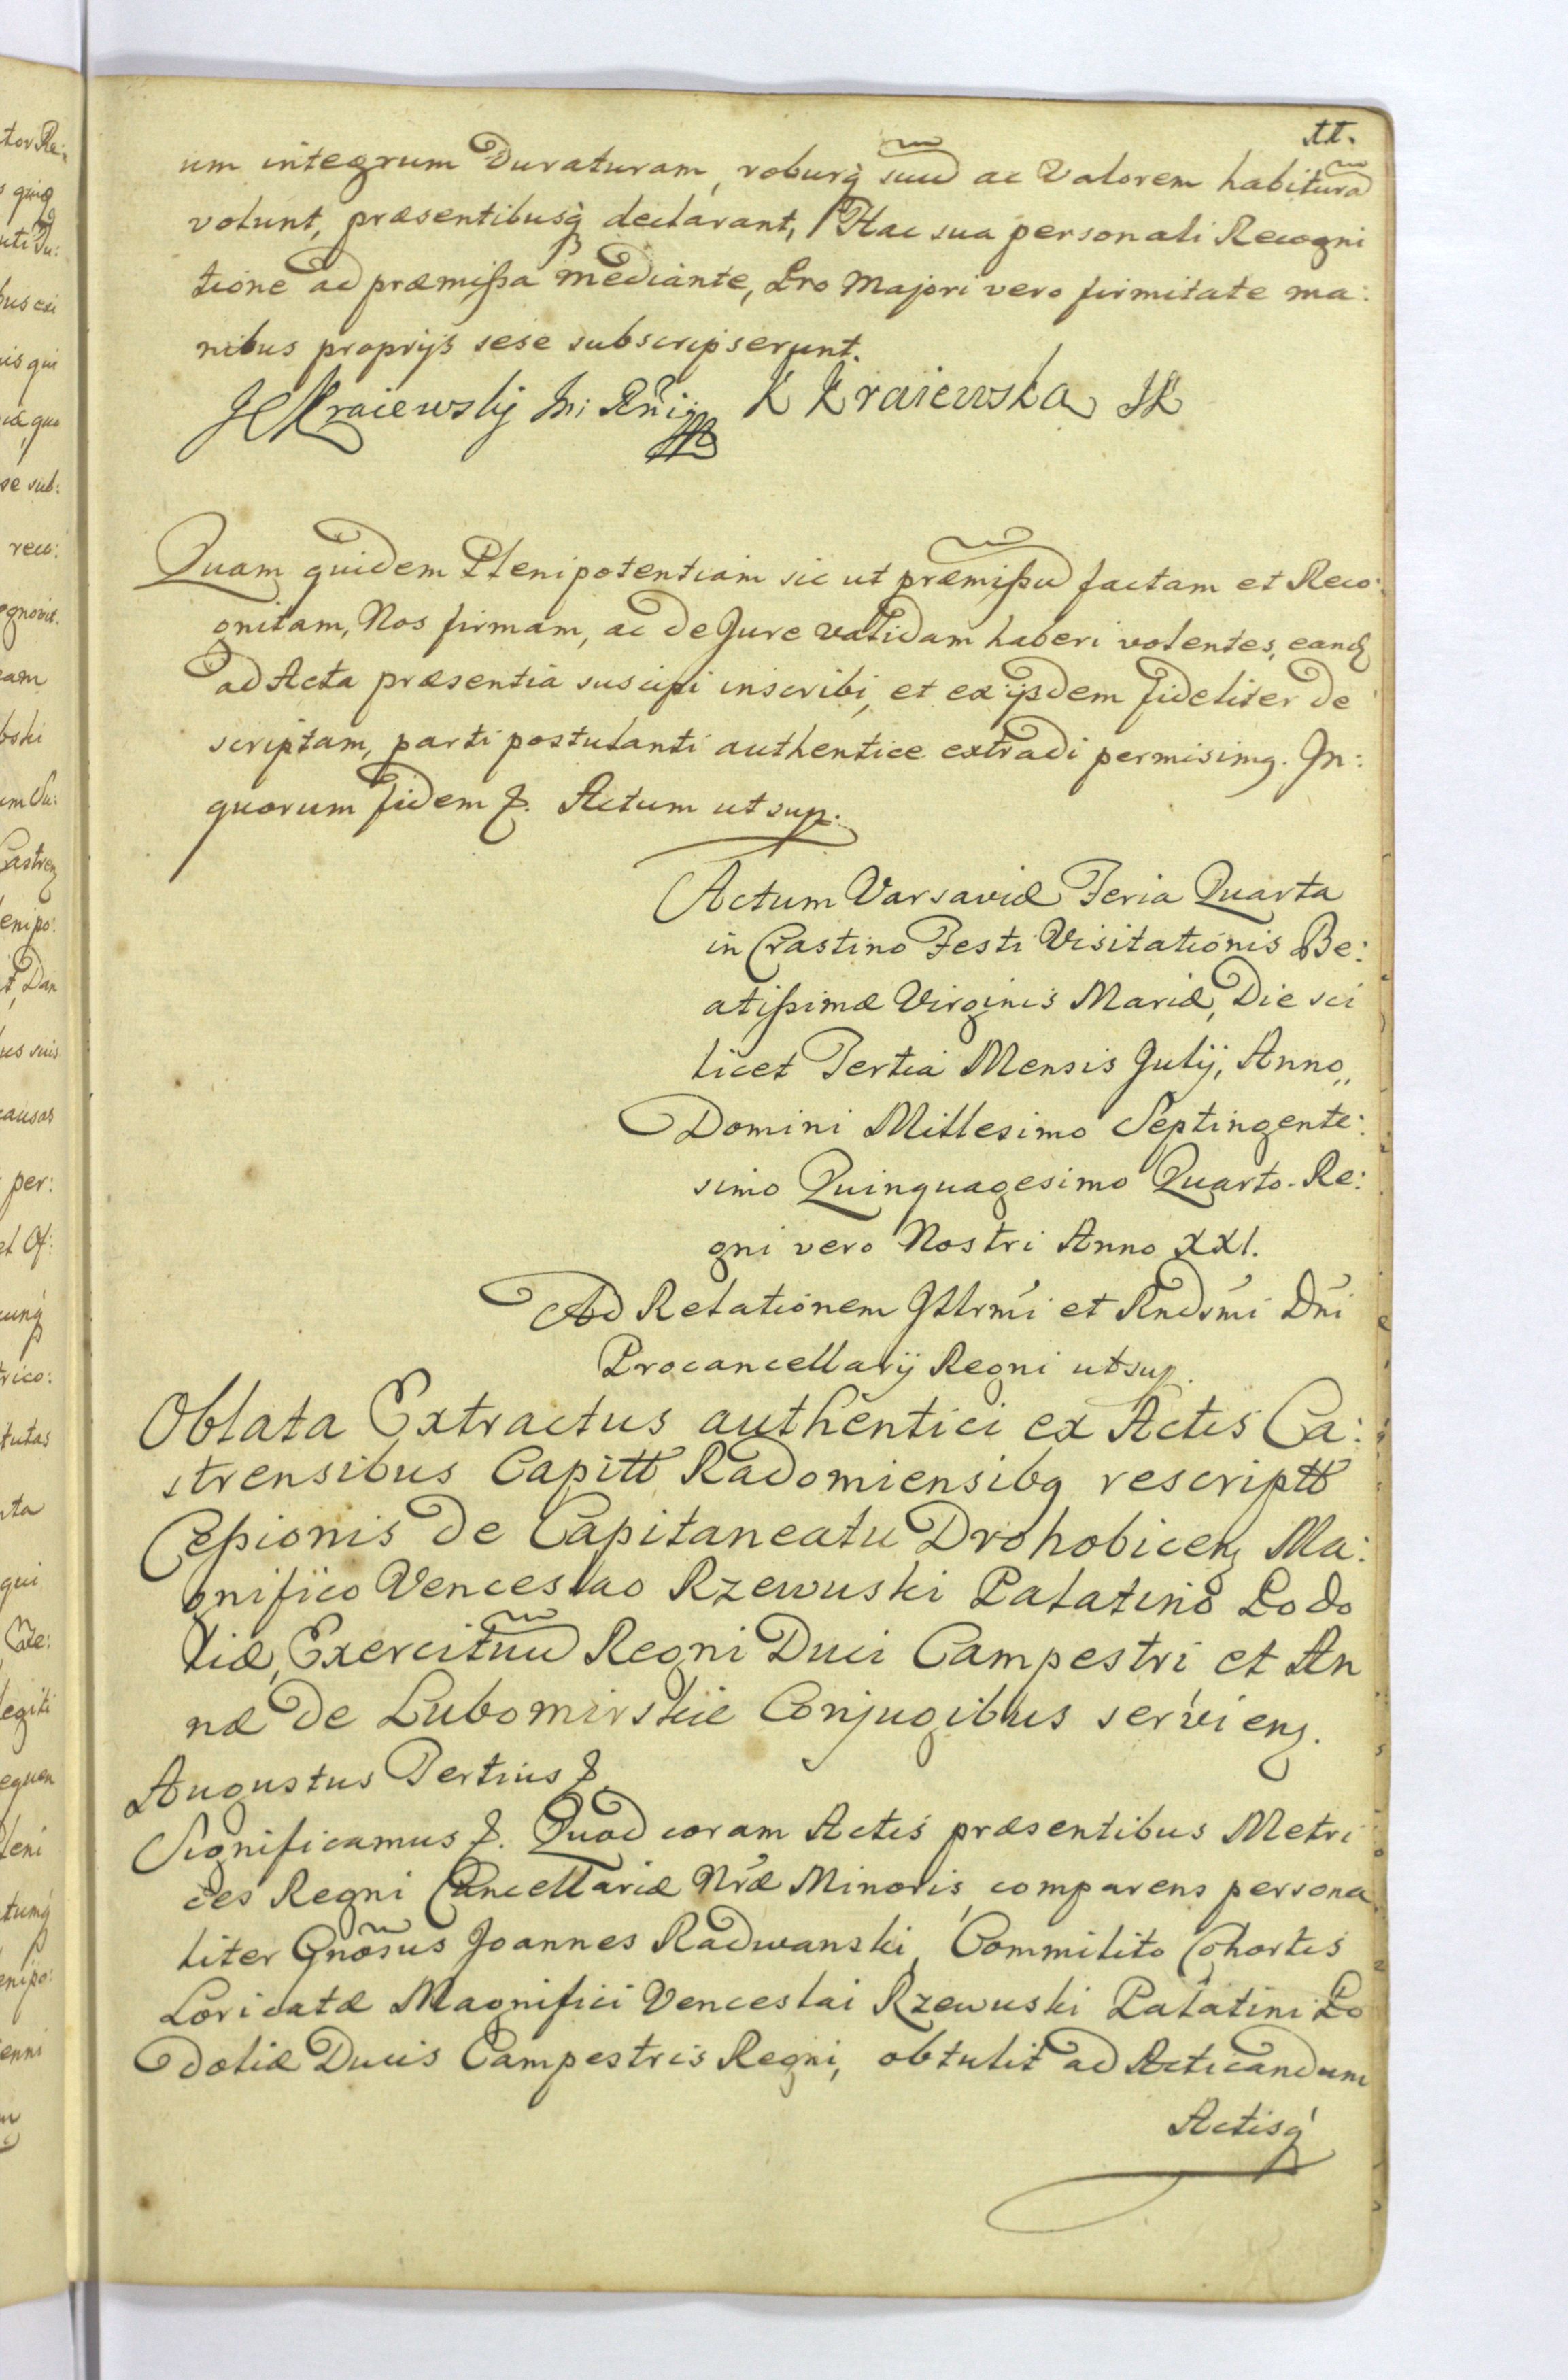 tt.
um integrum Duraturam, roburq̀ suũ ac Valorem habiturã
volunt, præsentibusq̀ declarant, Hac sua personali Recogni
tione ad præmißa mediante, Pro Majori vero firmitate ma:
nibus propryis sese subscripserunt.
Kraiewskij K Kraiewska SK
Quam quidem Plenipotentiam sic ut præmißũ factam et Reco:
gnitam, Nos firmam, ac de Jure validam haberi volentes, eandꝫ
ad Acta præsentia suscipi inscribi, et ex ijsdem fideliter de
scriptam, parti postulanti authentice extradi permisimq. In:
quorum fidem &. Actum ut sup.
Actum Varsaviæ Feria Quarta
in Crastino Festi Visitationis Be:
atißimæ Virginis Mariæ, Die sci
licet Tertia Mensis Julij, Anno„
Domini Millesimo Septingente:
simo Quinquagesimo Quarto. Re:
gni vero Nostri Anno XXI.
Ad Relationem Illrmi et Rndsmi Dni
Procancellarij Regni ut sup.
Oblata Extractus authentici ex Actis Ca:
strensibus Capitt Radomiensibq rescriptt
Ceßionis de Capitaneatu Drohobicenꝫ Ma:
gnifico Venceslao Rzewuski Palatino Podo
liæ, Exercituũ Regni Duci Campestri et An
næ de Lubomirskie Conjugibus servienꝫ.
Augustus Tertius &
Significamus &. Quod coram Actis præsentibus Metri
ces Regni Cancellariæ Nræ Minoris, comparens persona
liter Gnosus Joannes Radwanski, Commilito Cohortis
Loricatæ Magnifici Venceslai Rzewuski Palatini Po
doliæ Ducis Campestris Regni, obtulit ad Acticandum
Actisq̀